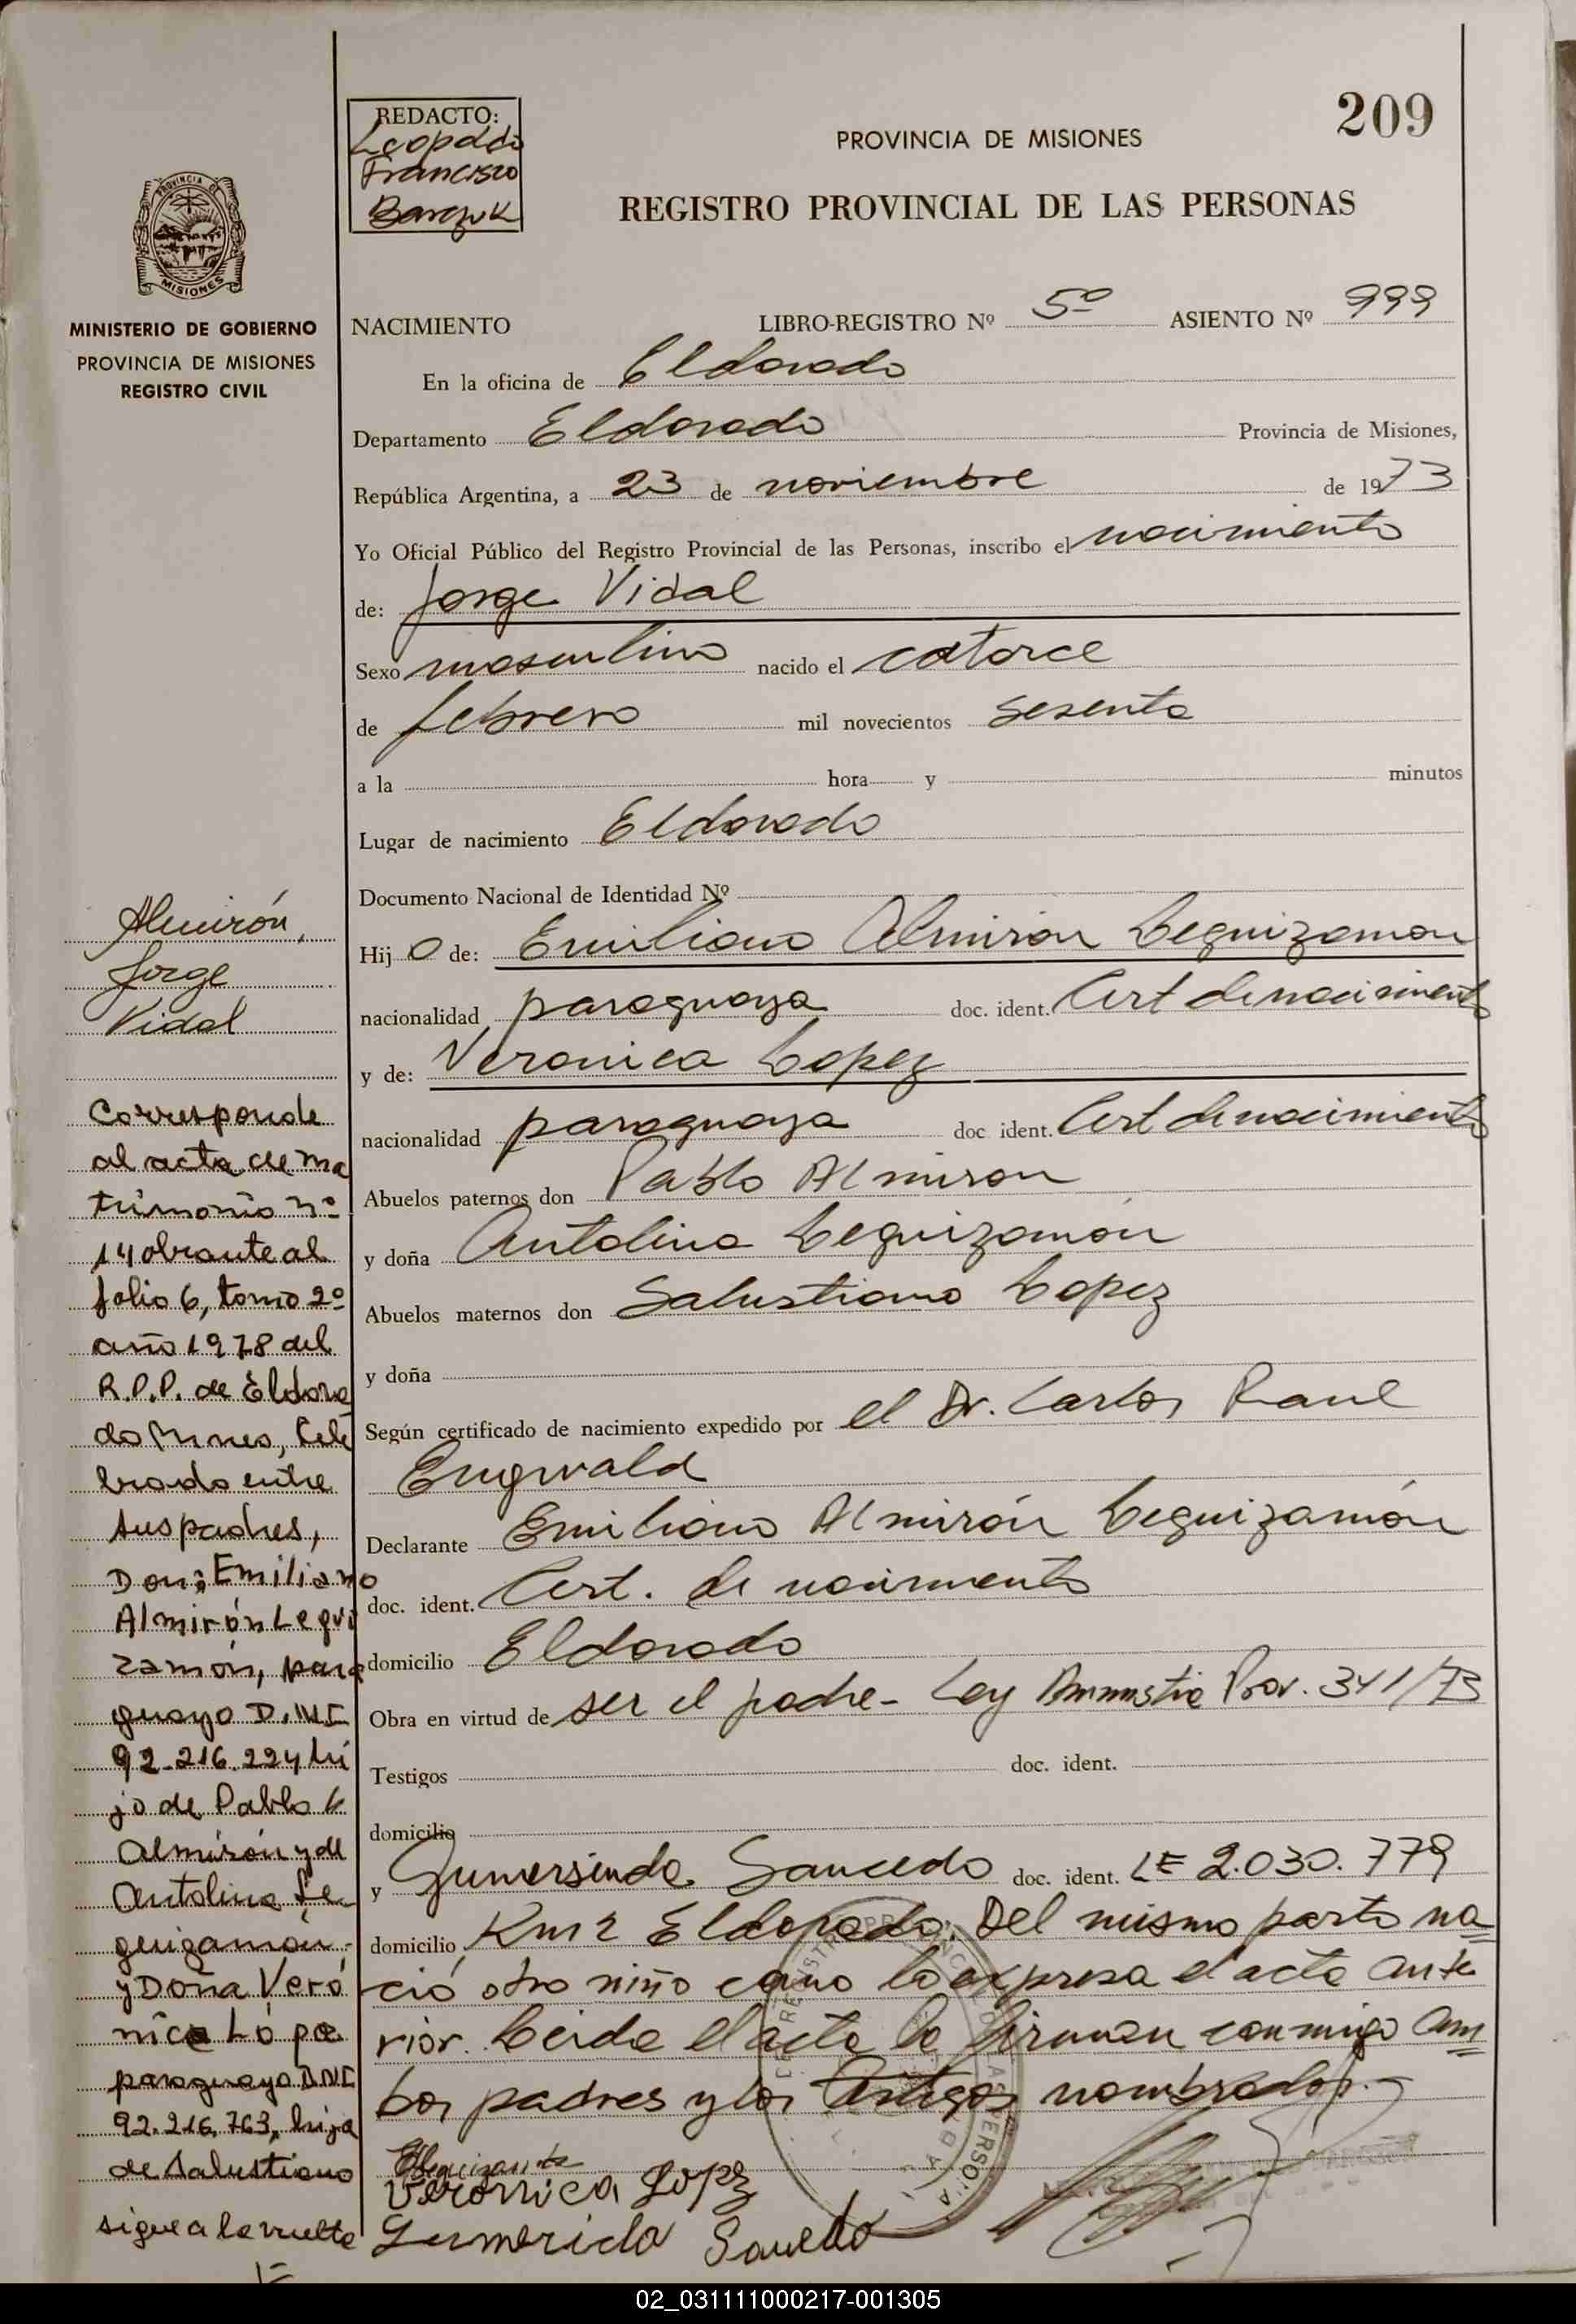 209
REDACTO:
Leopoldo
Francisco
Barczuk
PROVINCIA DE MISIONES
REGISTRO PROVINCIAL DE LAS PERSONAS
PROVINCIA DE
MISIONES
MINISTERIO DE GOBIERNO
PROVINCIA DE MISIONES
REGISTRO CIVIL
NACIMIENTO LIBRO-REGISTRO Nº 5º ASIENTO Nº 999
En la oficina de Eldorado
Departamento Eldorado Provincia de Misiones,
República Argentina, a 23 de noviembre de 1973
Yo Oficial Público del Registro Provincial de las Personas, inscribo el nacimiento
de: Jorge Vidal
Sexo masculino nacido el catorce
de febrero mil novecientos sesenta
a la hora y minutos
Lugar de nacimiento Eldorado
Documento Nacional de Identidad Nº
Hijo de: Emiliano Almirón Leguizamon
nacionalidad paraguaya doc. ident. Cert de nacimiento
y de: Veronica Lopez
nacionalidad paraguaya doc ident. Cert de nacimiento
Abuelos paternos don Pablo Almiron
y doña Antolina Leguizamón
Abuelos maternos don Salustiano Lopez
y doña
Según certificado de nacimiento expedido por el Dr. Carlos Raul
Engwald
Declarante Emiliano Almirón Leguizamón
doc. ident. Cert. de nacimiento
domicilio Eldorado
Obra en virtud de ser el padre- Ley Amnistia Prov. 341/73
Testigos doc. ident.
domicilio
y Gumersinda Saucedo doc. ident. LE 2.030.779
domicilio Km 2 Eldorado. Del mismo parto na
ció otro niño como lo expresa el acta ante
rior. Leida el acta la firman conmigo am
bos padres y los testigos nombrados.-
Veronica Lopez
Gumerida Saucedo
Almirón,
Jorge
Vidal
Corresponde
al acta de ma
trimonio nº
14 obrante al
folio 6, tomo 2º
año 1978 del
R.P.P. de Eldora
do Mnes, Cele
brado entre
sus padres,
Don: Emiliano
Almirón Legui
zamón, para
guayo D.N.I
92.216.224 hi
jo de Pablo
Almirón y de
Antolina Le
guizamon
y Doña Veró
nica Lope
paraguaya DNI
92.216.763, hija
de Salustiano
sigue a la vuelta
02_031111000217-001305